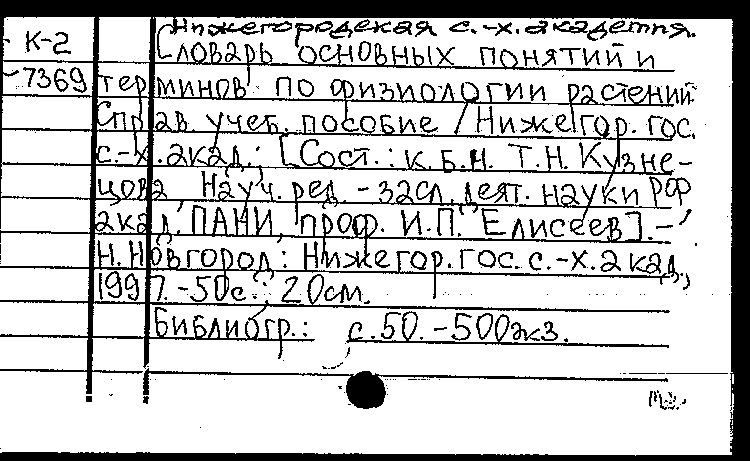 Нижегородская с.-х. академия.
К-2 Словарь основных понятий и
7369 терминов по физиологии растений
Справ. учеб. пособие / Нижегор. гос.
с.-х. акад.; [Сост.: к.б.н. Т.Н. Кузне-
цова, Науч. ред. - засл. деят. науки РФ,
акад. ПАНИ, проф. И.П. Елисеев]. -
Н. Новгород: Нижегор. гос. с.-х. акад.,
1997. - 50 с.; 20 см.
Библиогр.: с. 50. - 500 экз.